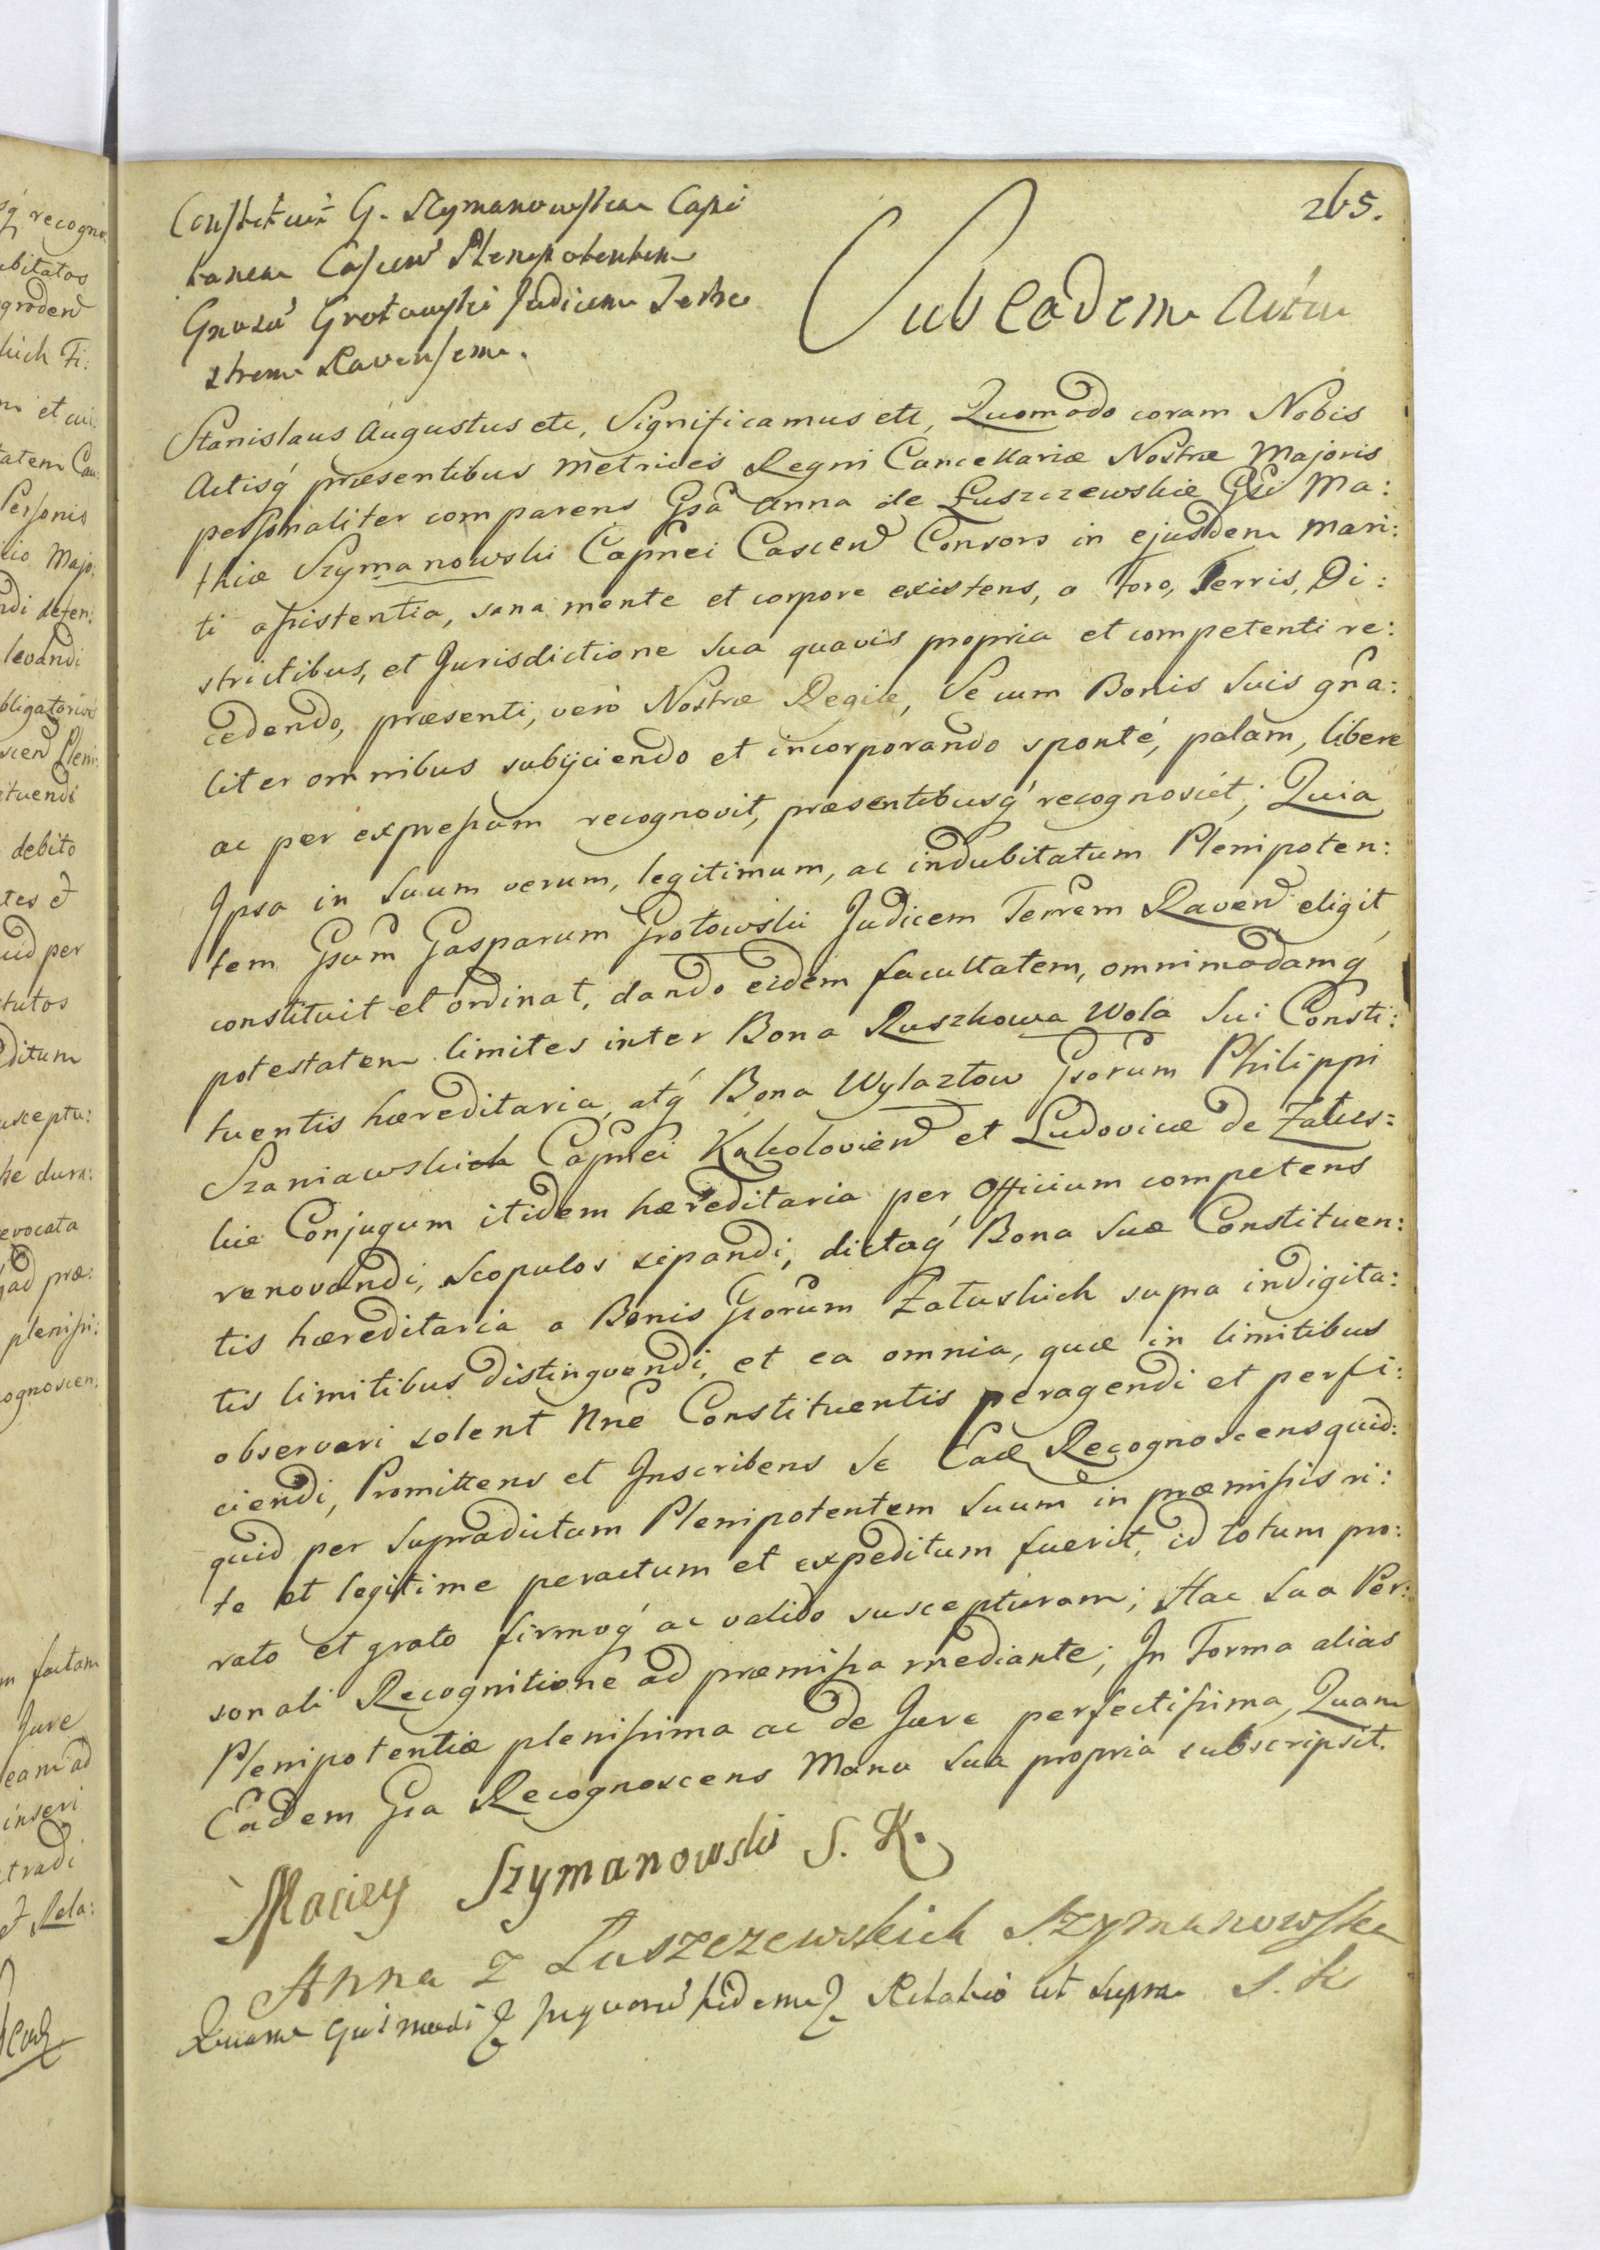 265.
Constituit G. Szymanowska Capi
tanea Cascen Plenipotentem
Gnosu Grotowski Judicem Terre
strem Ravensem.
Sub eadem Actu
Stanislaus Augustus etc, Significamus etc, Quomodo coram Nobis
Actisq́ præsentibus Metrices Regni Cancellariæ Nostræ Majoris
personaliter comparens Gsa Anna de Łuszczewskie Gsi Ma:
thiæ Szymanowski Capnei Cascen Consors in ejusdem Mari:
ti assistentia, sana mente et corpore existens, a Foro, Terris, Di:
strictibus, et Jurisdictione sua quavis propria et competenti re:
cedendo, præsenti, verò Nostræ Regiæ, Se cum Bonis suis gña:
liter omnibus subijciendo et incorporando sponté, palam, libere
ac per expressum recognovit, præsentibusq́ recognoscit; Quia
Ipsa in Suum verum, legitimum, ac indubitatum Plenipoten:
tem Gsum Gasparum Grotowski Judicem Terrem Raven eligit,
constituit et ordinat, dando eidem facultatem, omnimodamq́
potestatem limites inter Bona Ruszkowa Wola sui Consti:
tuentis hæreditaria, atq́ Bona Wylaztow Gsorum Philippi
Szaniawskich Capnei Kąkolovien et Ludovicæ de Załus=
kie Conjugum itidem hæreditaria per Officium competens
renovandi, Scopulos sipandi, dictaq́ Bona suæ Constituen:
tis hæreditaria a Bonis Gsorum Załuskich supra indigita:
tis limitibus distinguendi, et ea omnia, quæ in limitibus
observari solent Nne Constituentis peragendi et perfi:
ciendi, Promittens et Inscribens Se Eadē Recognoscens quid:
quid per Supradictum Plenipotentem Suum in præmissis ri:
te et legitime peractum et expeditum fuerit, id totum pro:
rato et grato firmoq́ ac valido suscepturam; Hac Sua Per:
sonali Recognitione ad præmissa mediante; In Forma alias
Plenipotentiæ plenissima ac de Jure perfectissima, Quam
Eadem Gsa Recognoscens Manu sua propria subscripsit.
Maciey Szymanowski S. K.
Anna z Łuszczewskich Szymanowska
S. K
Quam Relatio ut supra